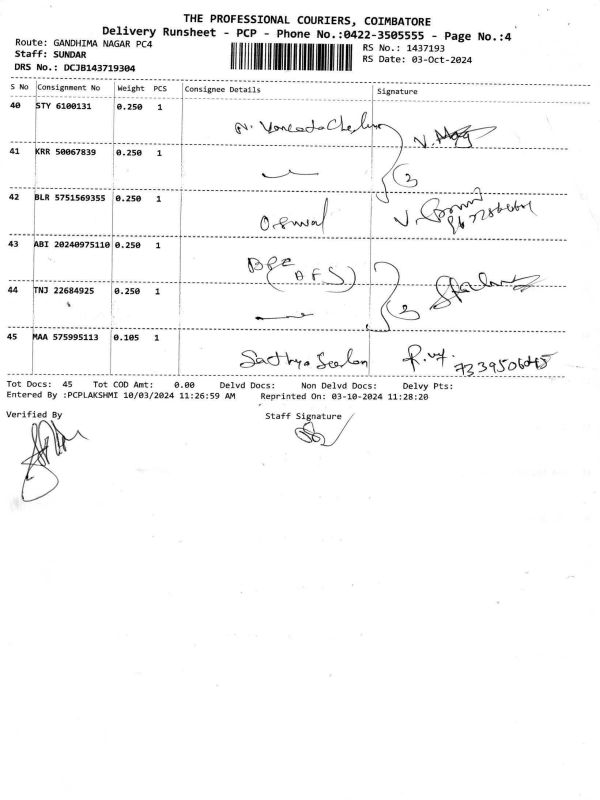 THE PROFESSIONAL COURIERS, COIMBATORE
Delivery Runsheet - PCP - Phone No.:0422-3505555 - Page No.:4
Route: GANDHIMA NAGAR PC4 RS No.: 1437193
Staff: SUNDAR RS Date: 03-Oct-2024
DRS No.: DCJB143719304
S No Consignment No Weight PCS Consignee Details Signature
40 STY 6100131 0.250 1
N.
41 KRR 50067839 0.250 1
42 BLR 5751569355 0.250 1
Oswal
43 ABI 20240975110 0.250 1
44 TNJ 22684925 0.250 1
45 MAA 575995113 0.105 1
Sathya
Tot Docs: 45 Tot COD Amt: 0.00 Delvd Docs: Non Delvd Docs: Delvy Pts:
Entered By :PCPLAKSHMI 10/03/2024 11:26:59 AM Reprinted On: 03-10-2024 11:28:20
Verified By Staff Signature